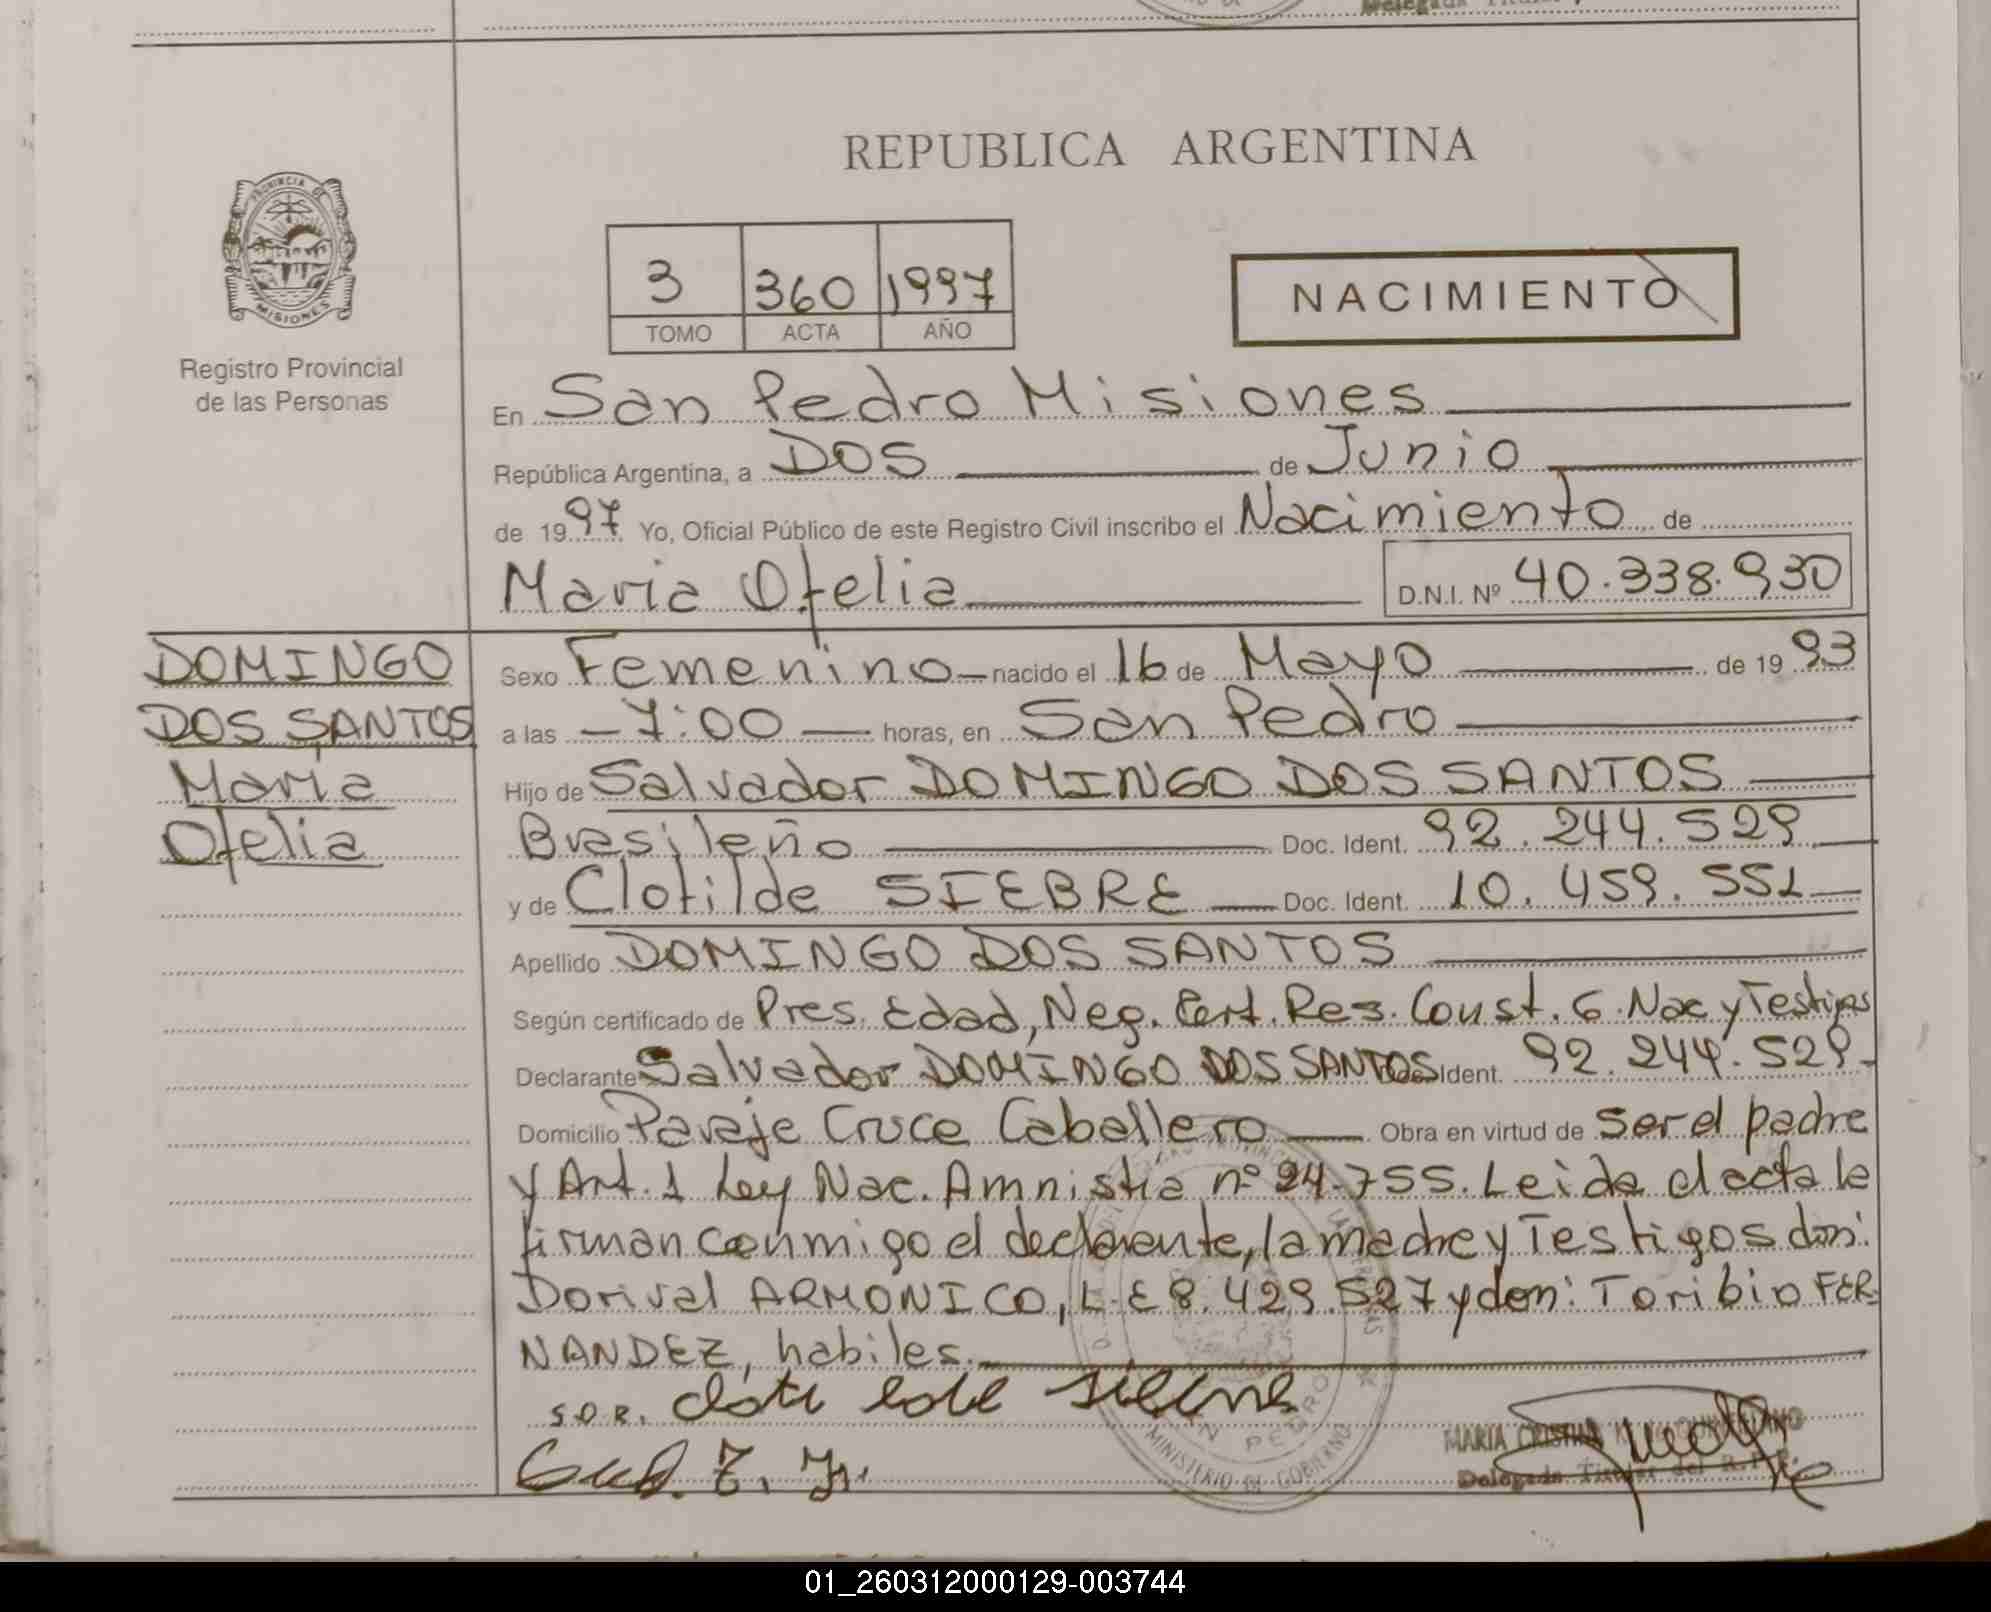 REPUBLICA ARGENTINA
PROVINCIA DE
MISIONES
Registro Provincial
de las Personas
3 360 1997
TOMO ACTA AÑO
NACIMIENTO
En San Pedro Misiones
República Argentina, a DOS de Junio
de 1997 Yo, Oficial Público de este Registro Civil inscribo el Nacimiento de
Maria Ofelia D.N.I. Nº 40.338.930
DOMINGO
DOS SANTOS
Maria
Ofelia
Sexo Femenino nacido el 16 de Mayo de 1993
a las 7:00 horas, en San Pedro
Hijo de Salvador DOMINGO DOS SANTOS
Brasileño Doc. Ident. 92.244.529
y de Clotilde SIEBRE Doc. Ident. 10.459.551
Apellido DOMINGO DOS SANTOS
Según certificado de Pres. Edad, Neg. Cert. Res. Const. G. Nac y Testigos
Declarante Salvador DOMINGO DOS SANTOS Ident. 92.244.529
Domicilio Paraje Cruce Caballero Obra en virtud de ser el padre
y Art. 1 Ley Nac. Amnistia nº 24.755. Leida el acta la
firman conmigo el declarante, la madre y Testigos don:
Dorival ARMONICO, L.E 8.429.527 y don: Toribio FER-
NANDEZ, habiles.
S.D.R.
MARIA CRISTINA
Delegada Titular del R.P.P.
SAN PEDRO
MINISTERIO DE GOBIERNO
01_260312000129-003744